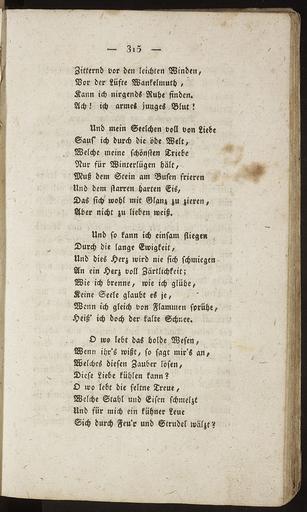 — 315 —
Zitternd vor den leichten Winden,
Vor der Lüfte Wankelmuth,
Kann ich nirgends Ruhe finden.
Ach! ich armes junges Blut!
Und mein Seelchen voll von Liebe
Saus' ich durch die öde Welt,
Welche meine schönsten Triebe
Nur für Winterlügen hält,
Muß dem Stein am Busen frieren
Und dem starren harten Eis,
Das sich wohl mit Glanz zu zieren,
Aber nicht zu lieben weiß.
Und so kann ich einsam fliegen
Durch die lange Ewigkeit,
Und dies Herz wird nie sich schmiegen
An ein Herz voll Zärtlichkeit;
Wie ich brenne, wie ich glühe,
Keine Seele glaubt es je,
Wenn ich gleich von Flammen sprühe,
Heiß' ich doch der kalte Schnee.
O wo lebt das holde Wesen,
Wenn ihr's wißt, so sagt mir's an,
Welches diesen Zauber lösen,
Diese Liebe kühlen kann?
O wo lebt die seltne Treue,
Welche Stahl und Eisen schmelzt
Und für mich ein kühner Leue
Sich durch Feu'r und Strudel wälzt?